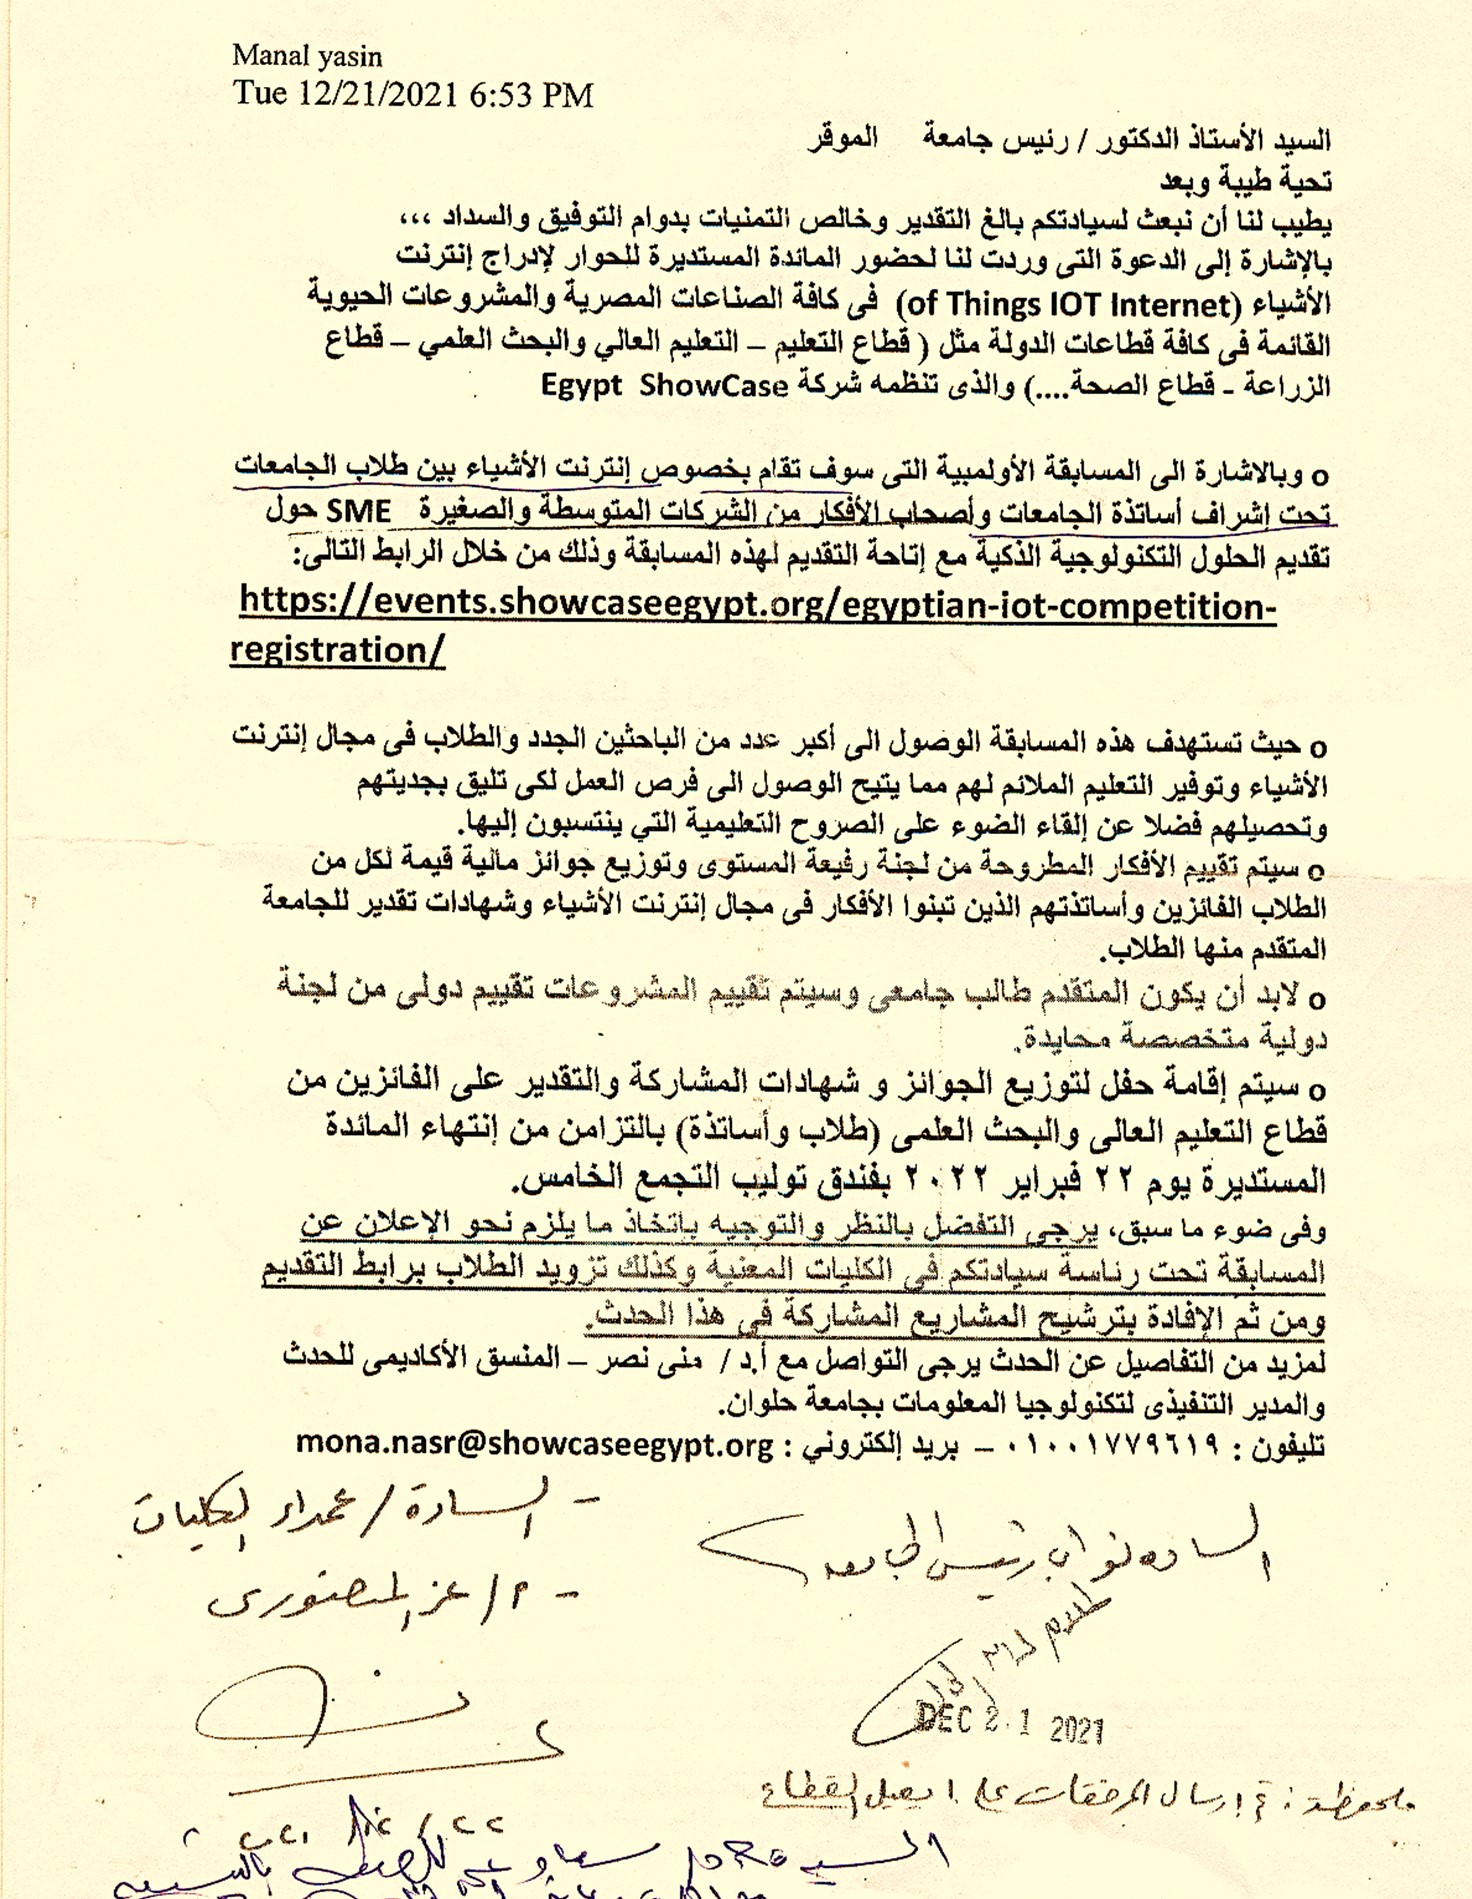 Manal yasin
Tue 12/21/2021 6:53 PM
السيد الأستاذ الدكتور / رئيس جامعة الموقر
تحية طيبة وبعد
يطيب لنا أن نبعث لسيادتكم بالغ التقدير وخالص التمنيات بدوام التوفيق والسداد ،،،
بالإشارة إلى الدعوة التى وردت لنا لحضور المائدة المستديرة للحوار لإدراج إنترنت
الأشياء (of Things IOT Internet) فى كافة الصناعات المصرية والمشروعات الحيوية
القائمة فى كافة قطاعات الدولة مثل ( قطاع التعليم – التعليم العالي والبحث العلمي – قطاع
الزراعة - قطاع الصحة....) والذى تنظمه شركة Egypt ShowCase
o وبالاشارة الى المسابقة الأولمبية التى سوف تقام بخصوص إنترنت الأشياء بين طلاب الجامعات
تحت إشراف أساتذة الجامعات وأصحاب الأفكار من الشركات المتوسطة والصغيرة SME حول
تقديم الحلول التكنولوجية الذكية مع إتاحة التقديم لهذه المسابقة وذلك من خلال الرابط التالى:
https://events.showcaseegypt.org/egyptian-iot-competition-
registration/
o حيث تستهدف هذه المسابقة الوصول الى أكبر عدد من الباحثين الجدد والطلاب فى مجال إنترنت
الأشياء وتوفير التعليم الملائم لهم مما يتيح الوصول الى فرص العمل لكى تليق بجديتهم
وتحصيلهم فضلا عن إلقاء الضوء على الصروح التعليمية التي ينتسبون إليها.
o سيتم تقييم الأفكار المطروحة من لجنة رفيعة المستوى وتوزيع جوائز مالية قيمة لكل من
الطلاب الفائزين وأساتذتهم الذين تبنوا الأفكار فى مجال إنترنت الأشياء وشهادات تقدير للجامعة
المتقدم منها الطلاب.
o لابد أن يكون المتقدم طالب جامعى وسيتم تقييم المشروعات تقييم دولى من لجنة
دولية متخصصة محايدة.
o سيتم إقامة حفل لتوزيع الجوائز و شهادات المشاركة والتقدير على الفائزين من
قطاع التعليم العالى والبحث العلمى (طلاب وأساتذة) بالتزامن من إنتهاء المائدة
المستديرة يوم ٢٢ فبراير ٢٠٢٢ بفندق توليب التجمع الخامس.
وفى ضوء ما سبق، يرجى التفضل بالنظر والتوجيه باتخاذ ما يلزم نحو الإعلان عن
المسابقة تحت رئاسة سيادتكم فى الكليات المعنية وكذلك تزويد الطلاب برابط التقديم
ومن ثم الإفادة بترشيح المشاريع المشاركة في هذا الحدث.
لمزيد من التفاصيل عن الحدث يرجى التواصل مع أ.د / منى نصر – المنسق الأكاديمى للحدث
والمدير التنفيذى لتكنولوجيا المعلومات بجامعة حلوان.
تليفون : ٠١٠٠١٧٧٩٦١٩ – بريد إلكتروني : mona.nasr@showcaseegypt.org
السادة نواب رئيس الجامعة
- السادة / عمداء الكليات
- م / عز المنصورى
DEC 21 2021
ملحوظة : تم إرسال المرفقات على ايميل القطاع
السيد